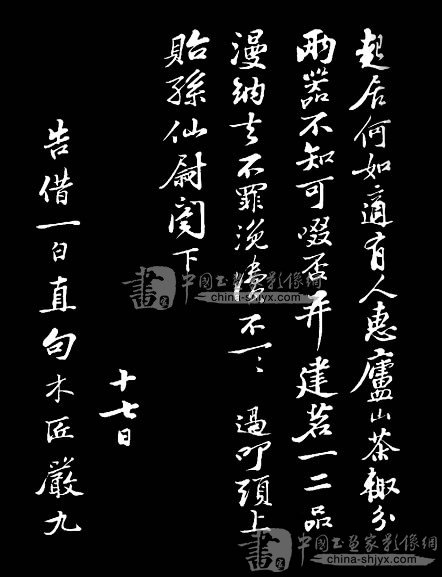 起居何如適有人惠廬山茶輒分
兩器不知可啜否并建茗一二品
漫納去不罪浼瀆不一〻 過叩頭上
貽孫仙尉閤下
十七日
告借一白直句木匠嚴九
書 中国书画家影像網
china-shjyx.com
書 中国书画家影像網
www.china-shjyx.com